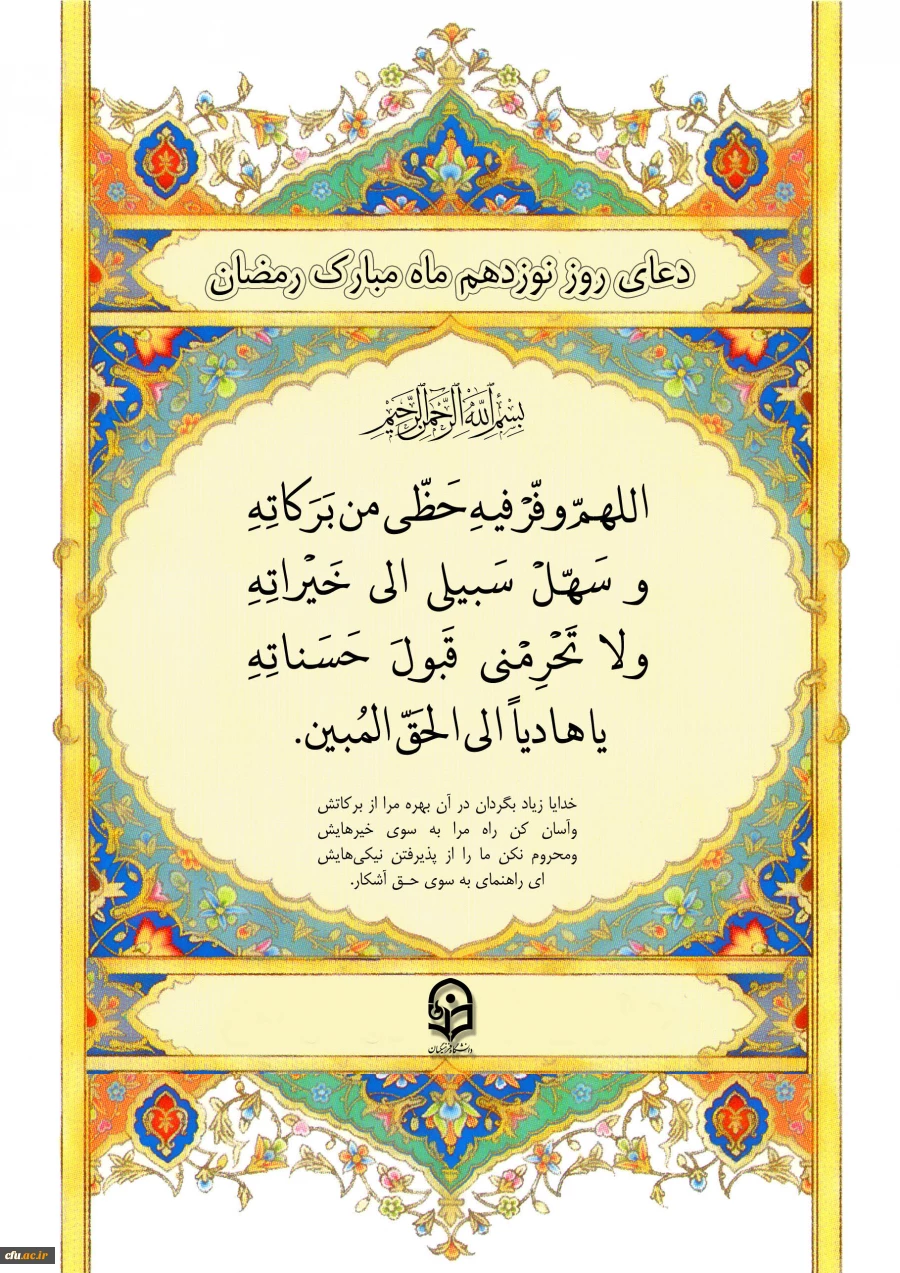 دعای روز نوزدهم ماه مبارک رمضان
بِسْمِ اللَّهِ الرَّحْمَنِ الرَّحِيْمِ
اللهمّ وفّرْ فیهِ حَظّی من بَرَکاتِهِ
و سَهّلْ سَبیلی الی خَیْراتِهِ
ولا تَحْرِمْنی قَبولَ حَسَناتِهِ
یا هادیاً الی الحَقّ المُبین.
خدایا زیاد بگردان در آن بهره مرا از برکاتش
وآسان کن راه مرا به سوی خیرهایش
ومحروم نکن ما را از پذیرفتن نیکی‌هایش
ای راهنمای به سوی حـق آشکار.
دانشگاه فرهنگیان
cfu.ac.ir